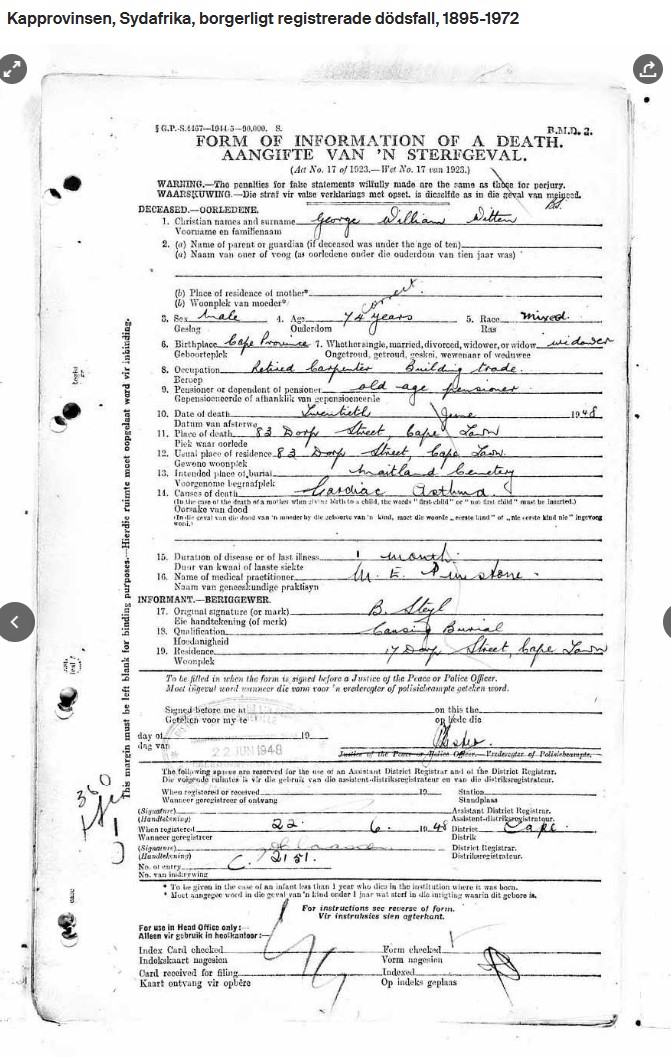 Kapprovinsen, Sydafrika, borgerligt registrerade dödsfall, 1895-1972
§ G.P.-S.4467—1944-5—90,000. S.
B.M.D. 2.
FORM OF INFORMATION OF A DEATH.
AANGIFTE VAN 'N STERFGEVAL.
(Act No. 17 of 1923.—Wet No. 17 van 1923.)
WARNING.—The penalties for false statements willfully made are the same as those for perjury.
WAARSKUWING.—Die straf vir valse verklarings met opset is dieselfde as in die geval van meineed.
DECEASED.—OORLEDENE.
1. Christian names and surname George William Witten
Voornaam en familienaam
2. (a) Name of parent or guardian (if deceased was under the age of ten)
(a) Naam van ouer of voog (as oorledene onder die ouderdom van tien jaar was)
(b) Place of residence of mother*
(b) Woonplek van moeder*
correct
3. Sex Male 4. Age 74 years 5. Race Mixed.
Geslag Ouderdom Ras
6. Birthplace Cape Province 7. Whether single, married, divorced, widower, or widow widower
Geboorteplek Ongetroud, getroud, geskei, wewenaar of weduwee
8. Occupation Retired Carpenter Building trade.
Beroep
9. Pensioner or dependent of pensioner old age pensioner.
Gepensioeneerde of afhanklik van gepensioeneerde
10. Date of death Twentieth June 1948
Datum van afsterwe
11. Place of death 83 Dorp Street Cape Town
Plek waar oorlede
12. Usual place of residence 83 Dorp Street, Cape Town.
Gewone woonplek
13. Intended place of burial Maitland Cemetery
Voorgenome begraafplek
14. Causes of death Cardiac Asthma
(In the case of the death of a mother when giving birth to a child, the words "first child" or "not first child" must be inserted.)
Oorsake van dood
(In die geval van die dood van 'n moeder by die geboorte van 'n kind, moet die woorde „eerste kind" of „nie eerste kind nie" ingevoeg word.)
15. Duration of disease or of last illness 1 month.
Duur van kwaal of laaste siekte
16. Name of medical practitioner M. E.
Naam van geneeskundige praktisyn
INFORMANT.—BERIGGEWER.
17. Original signature (or mark) B. Steyl
Eie handtekening (of merk)
18. Qualification Causing Burial
Hoedanigheid
19. Residence 17 Dorp Street, Cape Town
Woonplek
To be filled in when the form is signed before a Justice of the Peace or Police Officer.
Moet ingevul word wanneer die vorm voor 'n vrederegter of polisiebeampte geteken word.
Signed before me at on this the
Geteken voor my te op hede die
day of 19
dag van
22 JUN 1948
Justice of the Peace or Police Officer.—Vrederegter of Polisiebeampte.
The following spaces are reserved for the use of an Assistant District Registrar and of the District Registrar.
Die volgende ruimtes is vir die gebruik van die assistent-distriksregistrateur en van die distriksregistrateur.
When registered or received 19 Station
Wanneer geregistreer of ontvang Standplaas
(Signature) Assistant District Registrar.
(Handtekening) Assistent-distriksregistrateur.
When registered 22. 6. 1948 District Cape.
Wanneer geregistreer Distrik
(Signature) District Registrar.
(Handtekening) Distriksregistrateur.
No. of entry C. 2151.
No. van inskrywing
* To be given in the case of an infant less than 1 year who dies in the institution where it was born.
* Moet aangegee word in die geval van 'n kind onder 1 jaar wat sterf in die inrigting waarin dit gebore is.
For instructions see reverse of form.
Vir instruksies sien agterkant.
For use in Head Office only:—
Alleen vir gebruik in hoofkantoor:—
Index Card checked Form checked
Indekskaart nagesien Vorm nagesien
Card received for filing Indexed
Kaart ontvang vir opbêre Op indeks geplaas
This margin must be left blank for binding purposes.—Hierdie ruimte moet oopgelaat word vir inbinding.